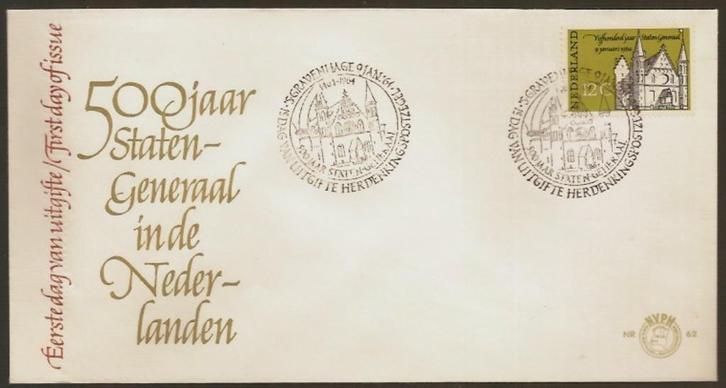 Eerste dag van uitgifte / First day of issue
500 jaar
Staten-
Generaal
in de
Neder-
landen
'S-GRAVENHAGE 9 JAN. '64
1464-1964
500 JAAR STATEN-GENERAAL
1e DAG VAN UITGIFTE HERDENKINGSPOSTZEGEL
NEDERLAND
Vijfhonderd jaar Staten-Generaal
9 januari 1964
12 c
'S-GRAVENHAGE 9 JAN. '64
500 JAAR STATEN-GENERAAL
1e DAG VAN UITGIFTE HERDENKINGSPOSTZEGEL
NR
NVPH
62